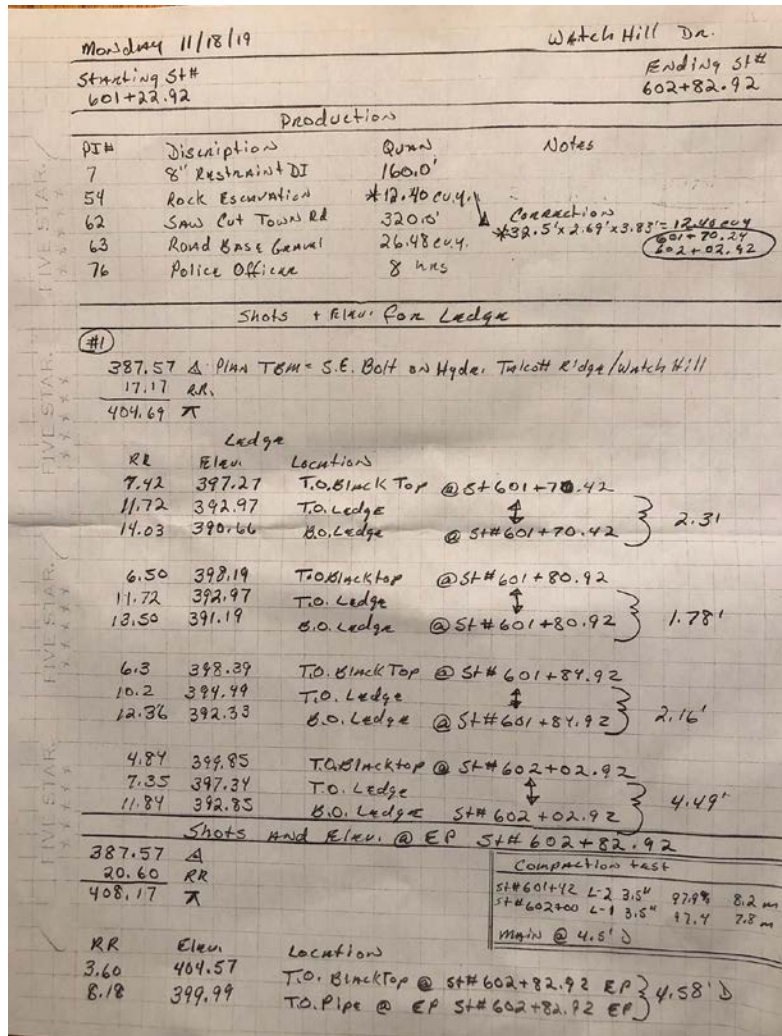 Monday 11/18/19 Watch Hill Dr.
Starting St# Ending St#
601+22.92 602+82.92
Production
PI# Discription Quan Notes
7 8" Restraint DI 160.0'
54 Rock Escavation *12.40 cu.y.
62 Saw Cut Town Rd 320.0' Correction
*32.5'x2.69'x3.83'= 12.40 cu y
63 Road Base Gravel 26.48 cu.y. 601+70.24
602+02.92
76 Police Officer 8 hrs
Shots + Elev. for Ledge
#1
387.57 Δ Plan TBM = S.E. Bolt on Hydr. Talcott Ridge/Watch Hill
17.17 R.R.
404.69 ⊼
Ledge
RR Elev. Location
7.42 397.27 T.O. Black Top @ St 601+70.42
11.72 392.97 T.O. Ledge
14.03 390.66 B.O. Ledge @ St#601+70.42 2.31
6.50 398.19 T.O. Blacktop @ St# 601+80.92
11.72 392.97 T.O. Ledge
13.50 391.19 B.O. Ledge @ St#601+80.92 1.78'
6.3 398.39 T.O. Black Top @ St# 601+84.92
10.2 394.49 T.O. Ledge
12.36 392.33 B.O. Ledge @ St#601+84.92 2.16'
4.84 399.85 T.O. Blacktop @ St#602+02.92
7.35 397.34 T.O. Ledge
11.84 392.85 B.O. Ledge St# 602+02.92 4.49'
Shots And Elev. @ EP St# 602+82.92
387.57 Δ
20.60 RR
408.17 ⊼
Compaction test
St#601+42 L-2 3.5" 97.9% 8.2 m
St#602+00 L-1 3.5" 97.4 7.8 m
Main @ 4.5' D
RR Elev. Location
3.60 404.57 T.O. BlackTop @ St#602+82.92 EP
8.18 399.99 T.O. Pipe @ EP St#602+82.92 EP 4.58' D
FIVE STAR.
FIVE STAR.
FIVE STAR.
FIVE STAR.